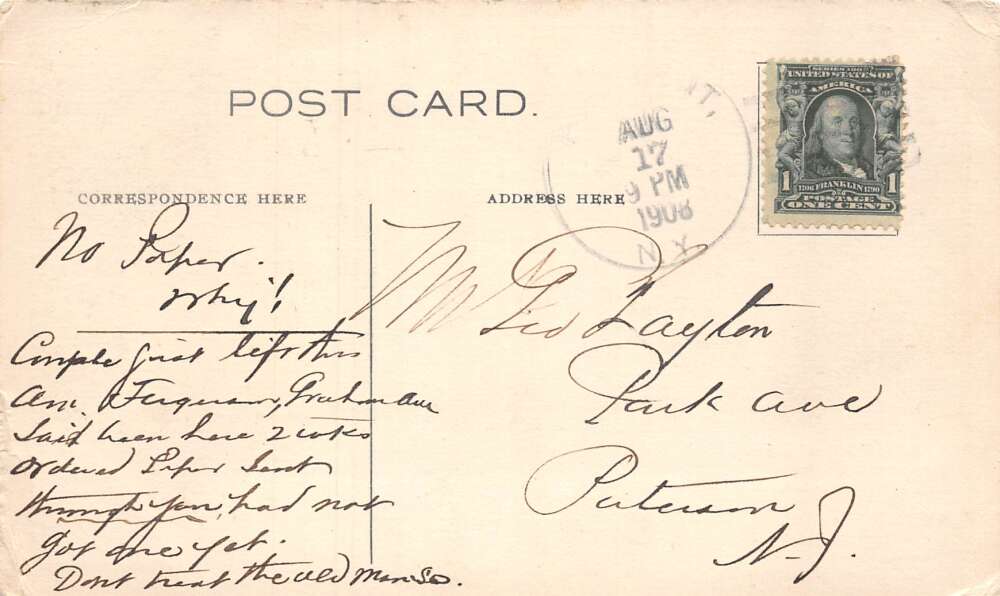 POST CARD.
SERIES 1902
UNITED STATES OF
AMERICA
1706 FRANKLIN 1790
1 1
POSTAGE
ONE CENT
NT.
AUG
17
9 PM
1908
N.Y.
CORRESPONDENCE HERE
ADDRESS HERE
No Paper.
Why!
Couple just left this
am. Ferguson, Graham Ave
Said been here 2 wks
ordered Paper Sent
through you, had not
got one yet.
Dont treat the old man so.
Mr Geo Layton
Park Ave
Paterson
N-J.